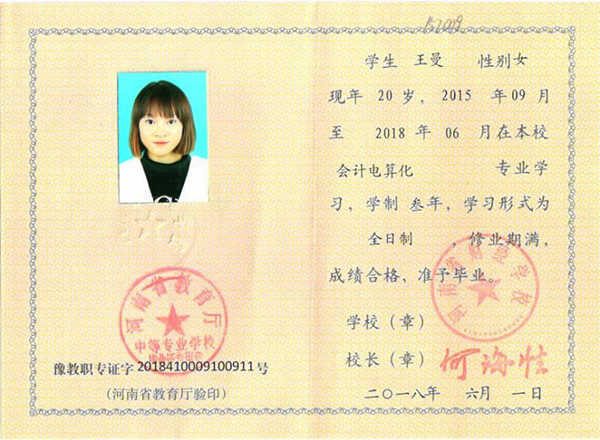 学生 王曼 性别女
现年 20 岁，2015 年 09 月
至 2018 年 06 月在本校
会计电算化 专业学
习，学制 叁年，学习形式为
全日制 ，修业期满，
成绩合格、准予毕业。
学校（章）
校长（章）
二〇一八年 六月 一日
河南省教育厅
中等专业学校
豫教职专证字 2018410009100911 号
（河南省教育厅验印）